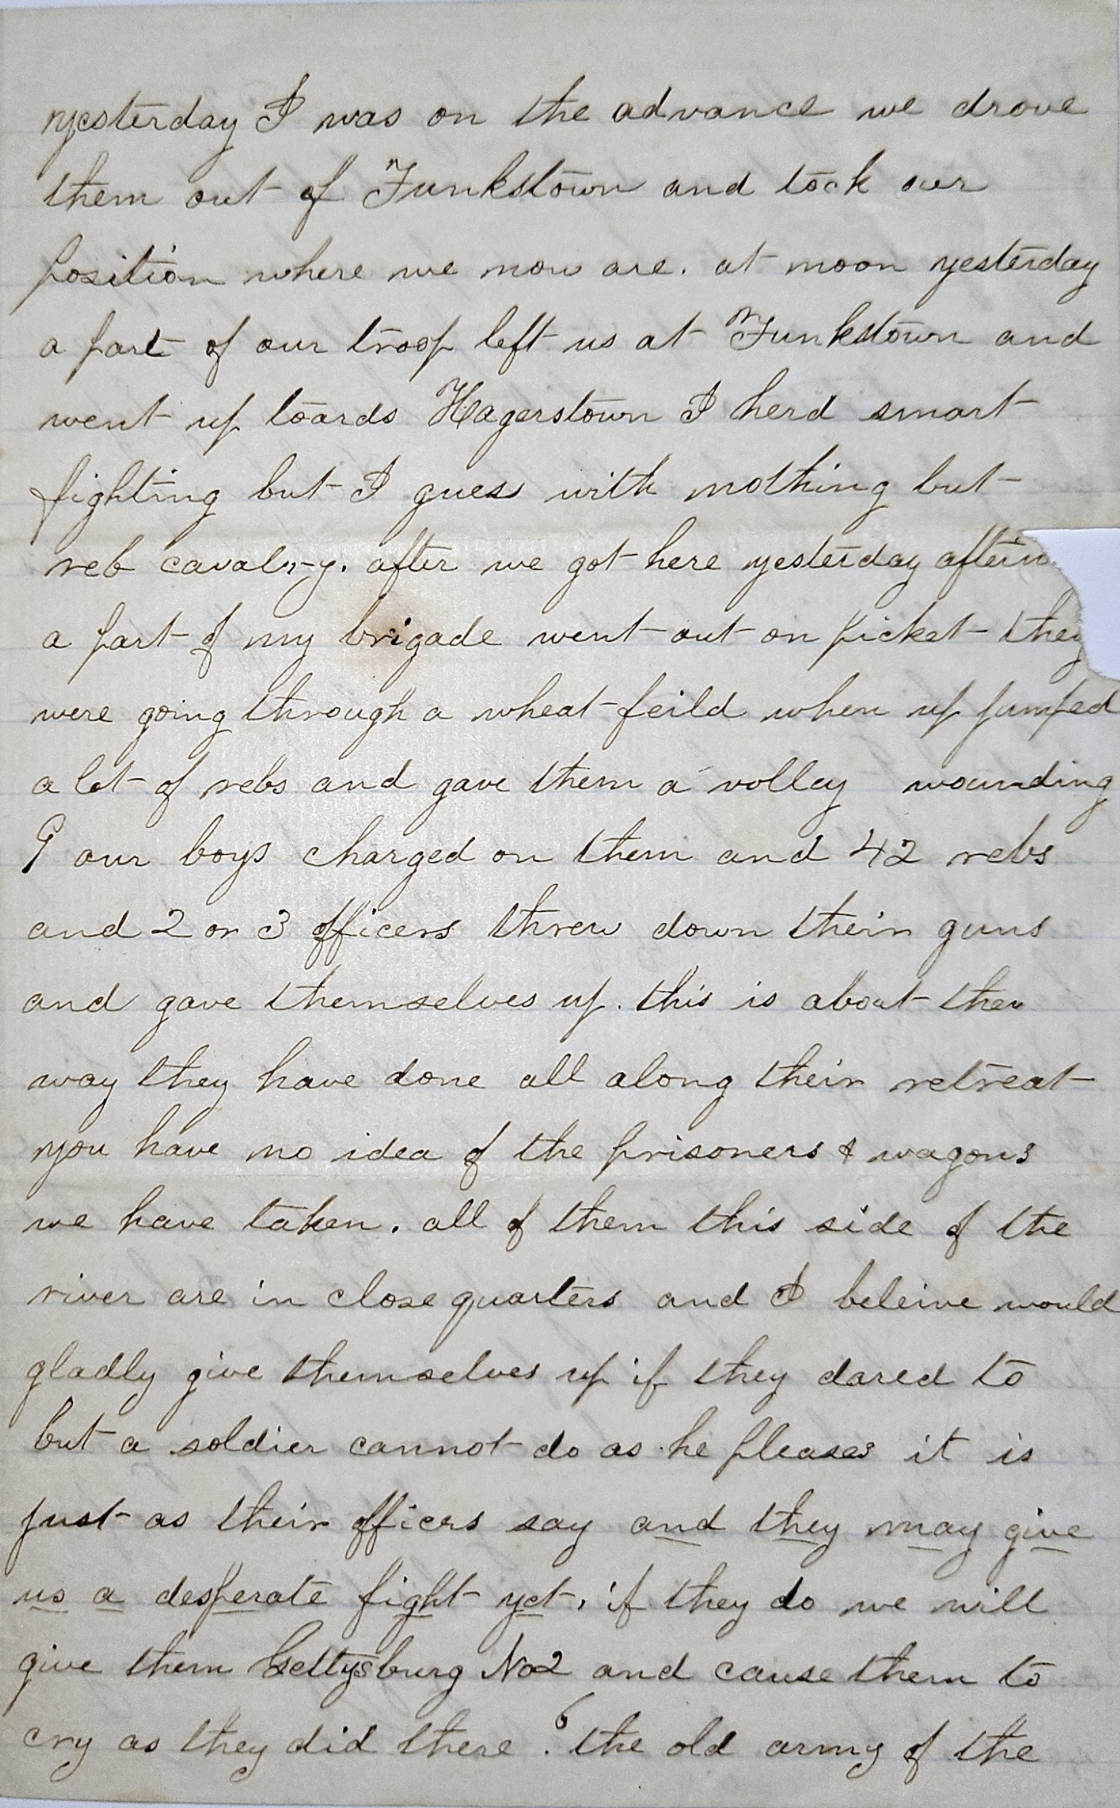 yesterday I was on the advance we drove
them out of Funkstown and took our
position where we now are. at noon yesterday
a part of our troop left us at Funkstown and
went up toards Hagerstown I herd smart
fighting but I gues with nothing but
reb cavalry. after we got here yesterday aftern
a part of my brigade went out on picket they
were going through a wheat feild when up jumped
a lot of rebs and gave them a volley wounding
9 our boys charged on them and 42 rebs
and 2 or 3 officers threw down their guns
and gave themselves up. this is about the
way they have done all along their retreat
you have no idea of the prisoners & wagons
we have taken. all of them this side of the
river are in close quarters and I beleive would
gladly give themselves up if they dared to
but a soldier cannot do as he pleases it is
just as their officers say and they may give
us a desperate fight yet. if they do we will
give them Gettysburg No2 and cause them to
cry as they did there. the old army of the